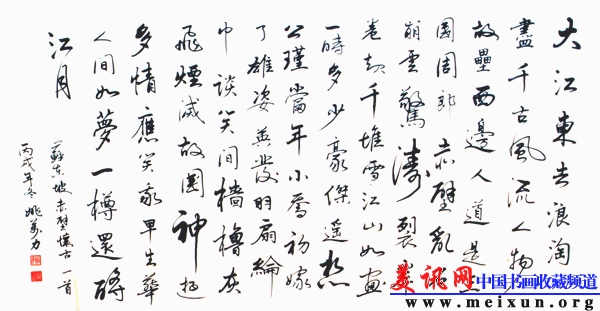 大江東去浪淘
盡千古風流人物
故壘西邊人道是
國周郎赤壁亂
崩雲驚濤裂
卷起千堆雪江山如畫
一時多少豪傑遥想
公瑾當年小喬初嫁
了雄姿英發羽扇綸
巾談笑間檣櫓灰
飛煙滅故國神遊
多情應笑我早生華
人間如夢一樽還酹
江月
蘇东坡赤壁懷古一首
丙戌年冬姚
美讯网
中国书画收藏频道
www.meixun.org